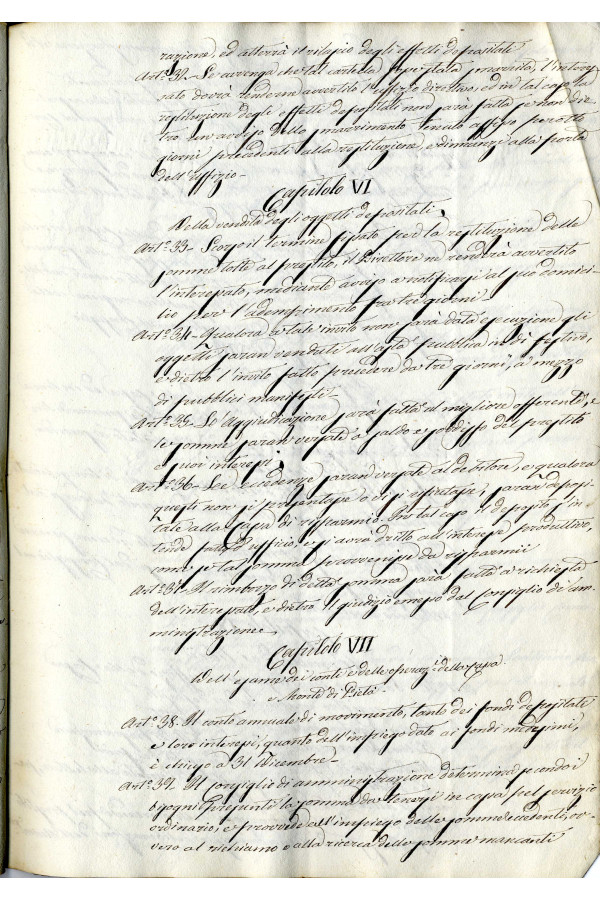 razione, ed otterrà il rilascio degli effetti depositati
Art.º 32- Se avvenga che tal cartella fosse stata smarrita, l'interes-
sato dovrà renderne avvertito l'uffizio direttivo, ed in tal caso la
restituzione degli effetti depositati non sarà fatta se non die-
tro un avviso dello smarrimento tenuto affisso per otto
giorni precedenti alla restituzione, e dinnanzi alla porta
dell'Uffizio-
Capitolo VI
Della vendita degli oggetti depositati
Art.º 33- Scorso il termine fissato per la restituzione delle
somme tolte al prestito, il Direttore ne renderà avvertito
l'interessato, mediante avviso a notificarsi al suo domici-
lio per l'adempimento fra tre giorni-
Art.º 34- Qualora a tale invito non sarà data esecuzione gli
oggetti saran venduti all'asta pubblica in dì festivo,
e dietro l'invito fatto precedere da tre giorni, a mezzo
di pubblici manifesti-
Art.º 35- L'Aggiudicazione sarà fatta al migliore offerente, e
le somme saran versate a saldo e soddisfo del prestito
e suoi interessi
Art.º 36- Le eccedenze saran versate al debitore, e qualora
questi non si presentasse o si rifiutasse, saran deposi-
tate alla Cassa di risparmio. In tal caso il deposito s'in-
tende fatto d'ufficio, e si avrà dritto all'interesse produttivo,
come se tal somma provvenisse da risparmii
Art.º 37- Il rimborzo di detta somma sarà fatto a richiesta
dell'interessato, e dietro il giudizio emesso dal Consiglio di am-
ministrazione-
Capitolo VII
Dell'esame dei conti e delle operaz.i della Cassa
e Monte di Pietà-
Art.º 38. Il conto annuale di movimento, tanto dei fondi depositati
e loro interessi, quanto dell'impiego dato ai fondi medesimi,
è chiuso a 31 Dicembre-
Art.º 39- Il consiglio di amministrazione determina secondo i
bisogni presunti la somma da tenersi in cassa pel servizio
ordinario, e provvede all'impiego delle somme eccedenti, ov-
vero al richiamo e alla ricerca delle somme mancanti